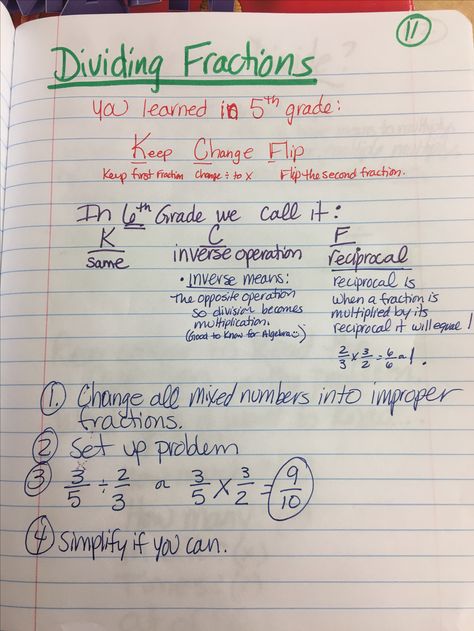 11
Dividing Fractions
You learned in 5th grade:
Keep Change Flip
Keep first fraction Change ÷ to x Flip the second fraction.
In 6th Grade we call it:
K C F
same inverse operation reciprocal
• Inverse means: reciprocal is
The opposite operation when a fraction is
so division becomes multiplied by its
multiplication. reciprocal it will equal 1
(Good to know for Algebra☺)
2/3 x 3/2 = 6/6 or 1.
1. Change all mixed numbers into improper
fractions.
2 Set up problem
3 3/5 ÷ 2/3 or 3/5 x 3/2 = 9/10
4 Simplify if you can.